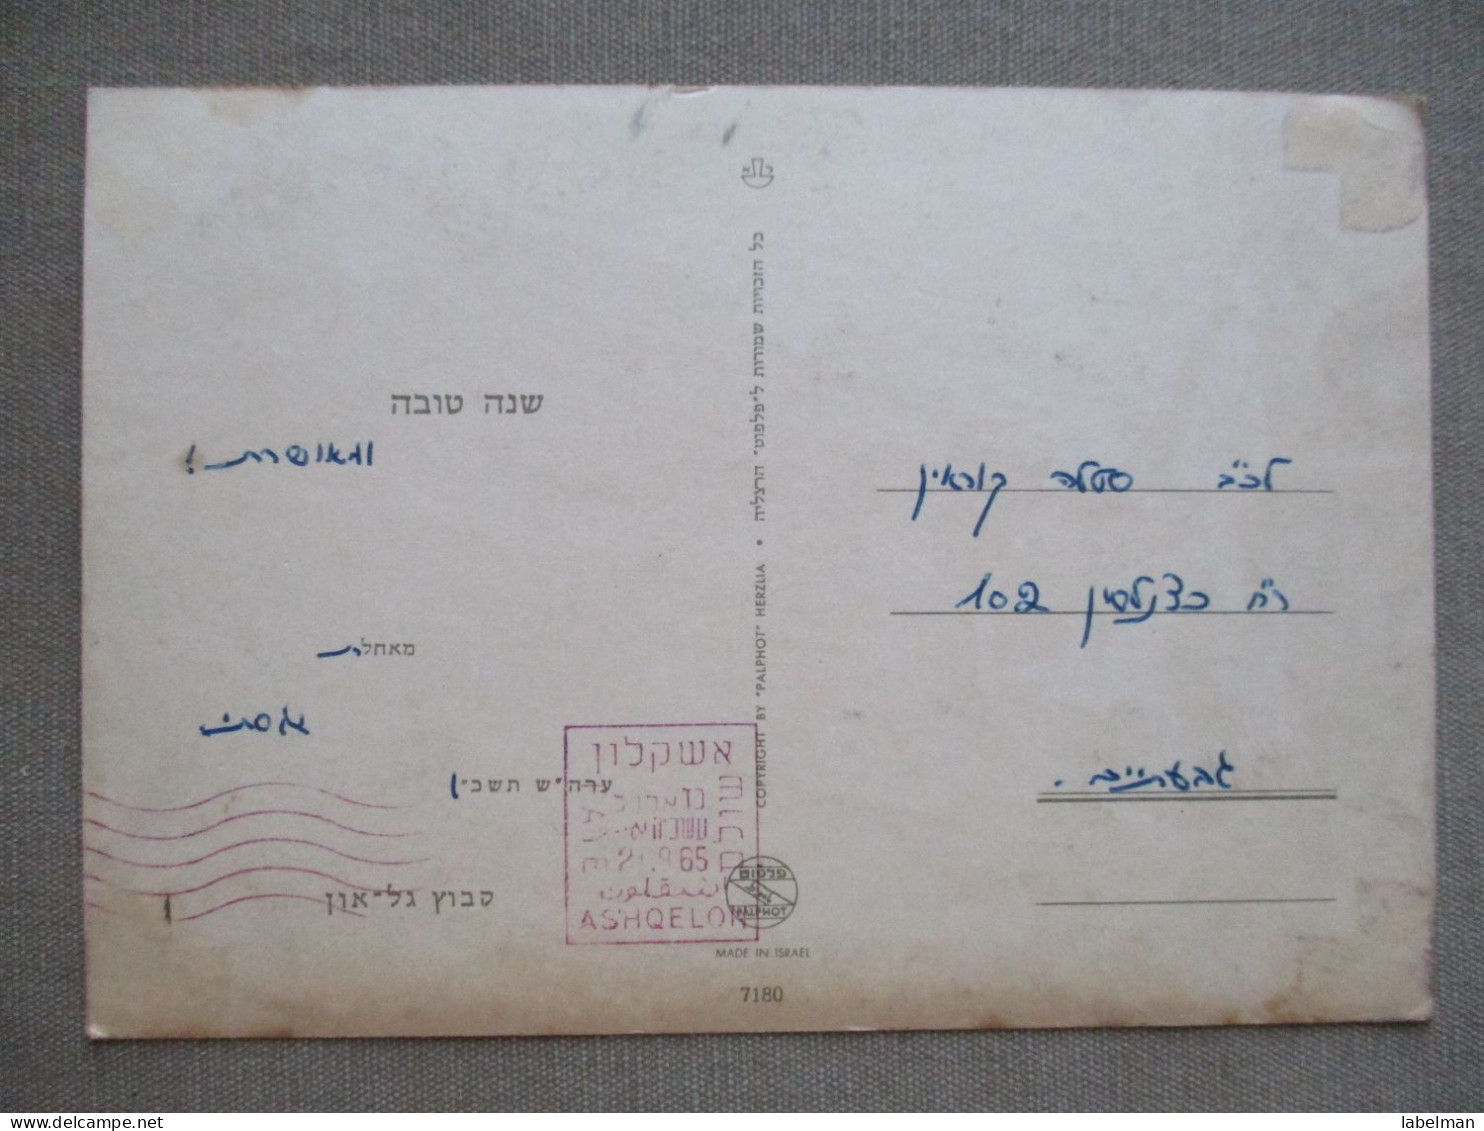 שנה טובה
ומאושרת !
מאחלת
ערה"ש תשכ"ו
קבוץ גל־און
אשקלון
21.9.65
ASHQELON
כל הזכויות שמורות ל"פלפוט" הרצליה • COPYRIGHT BY "PALPHOT" HERZLIA
פלפוט
PALPHOT
MADE IN ISRAEL
7180
לכ"ב סטלה קוראין
רח' כצנלסון 102
גבעתיים .
labelman